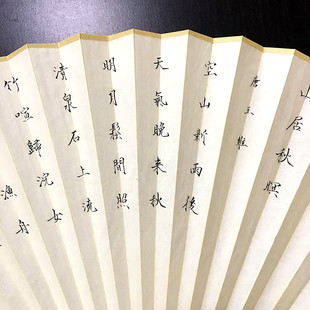 山居秋暝
唐王維
空山新雨後
天氣晚来秋
明月鬆間照
清泉石上流
竹喧歸浣女
漁舟